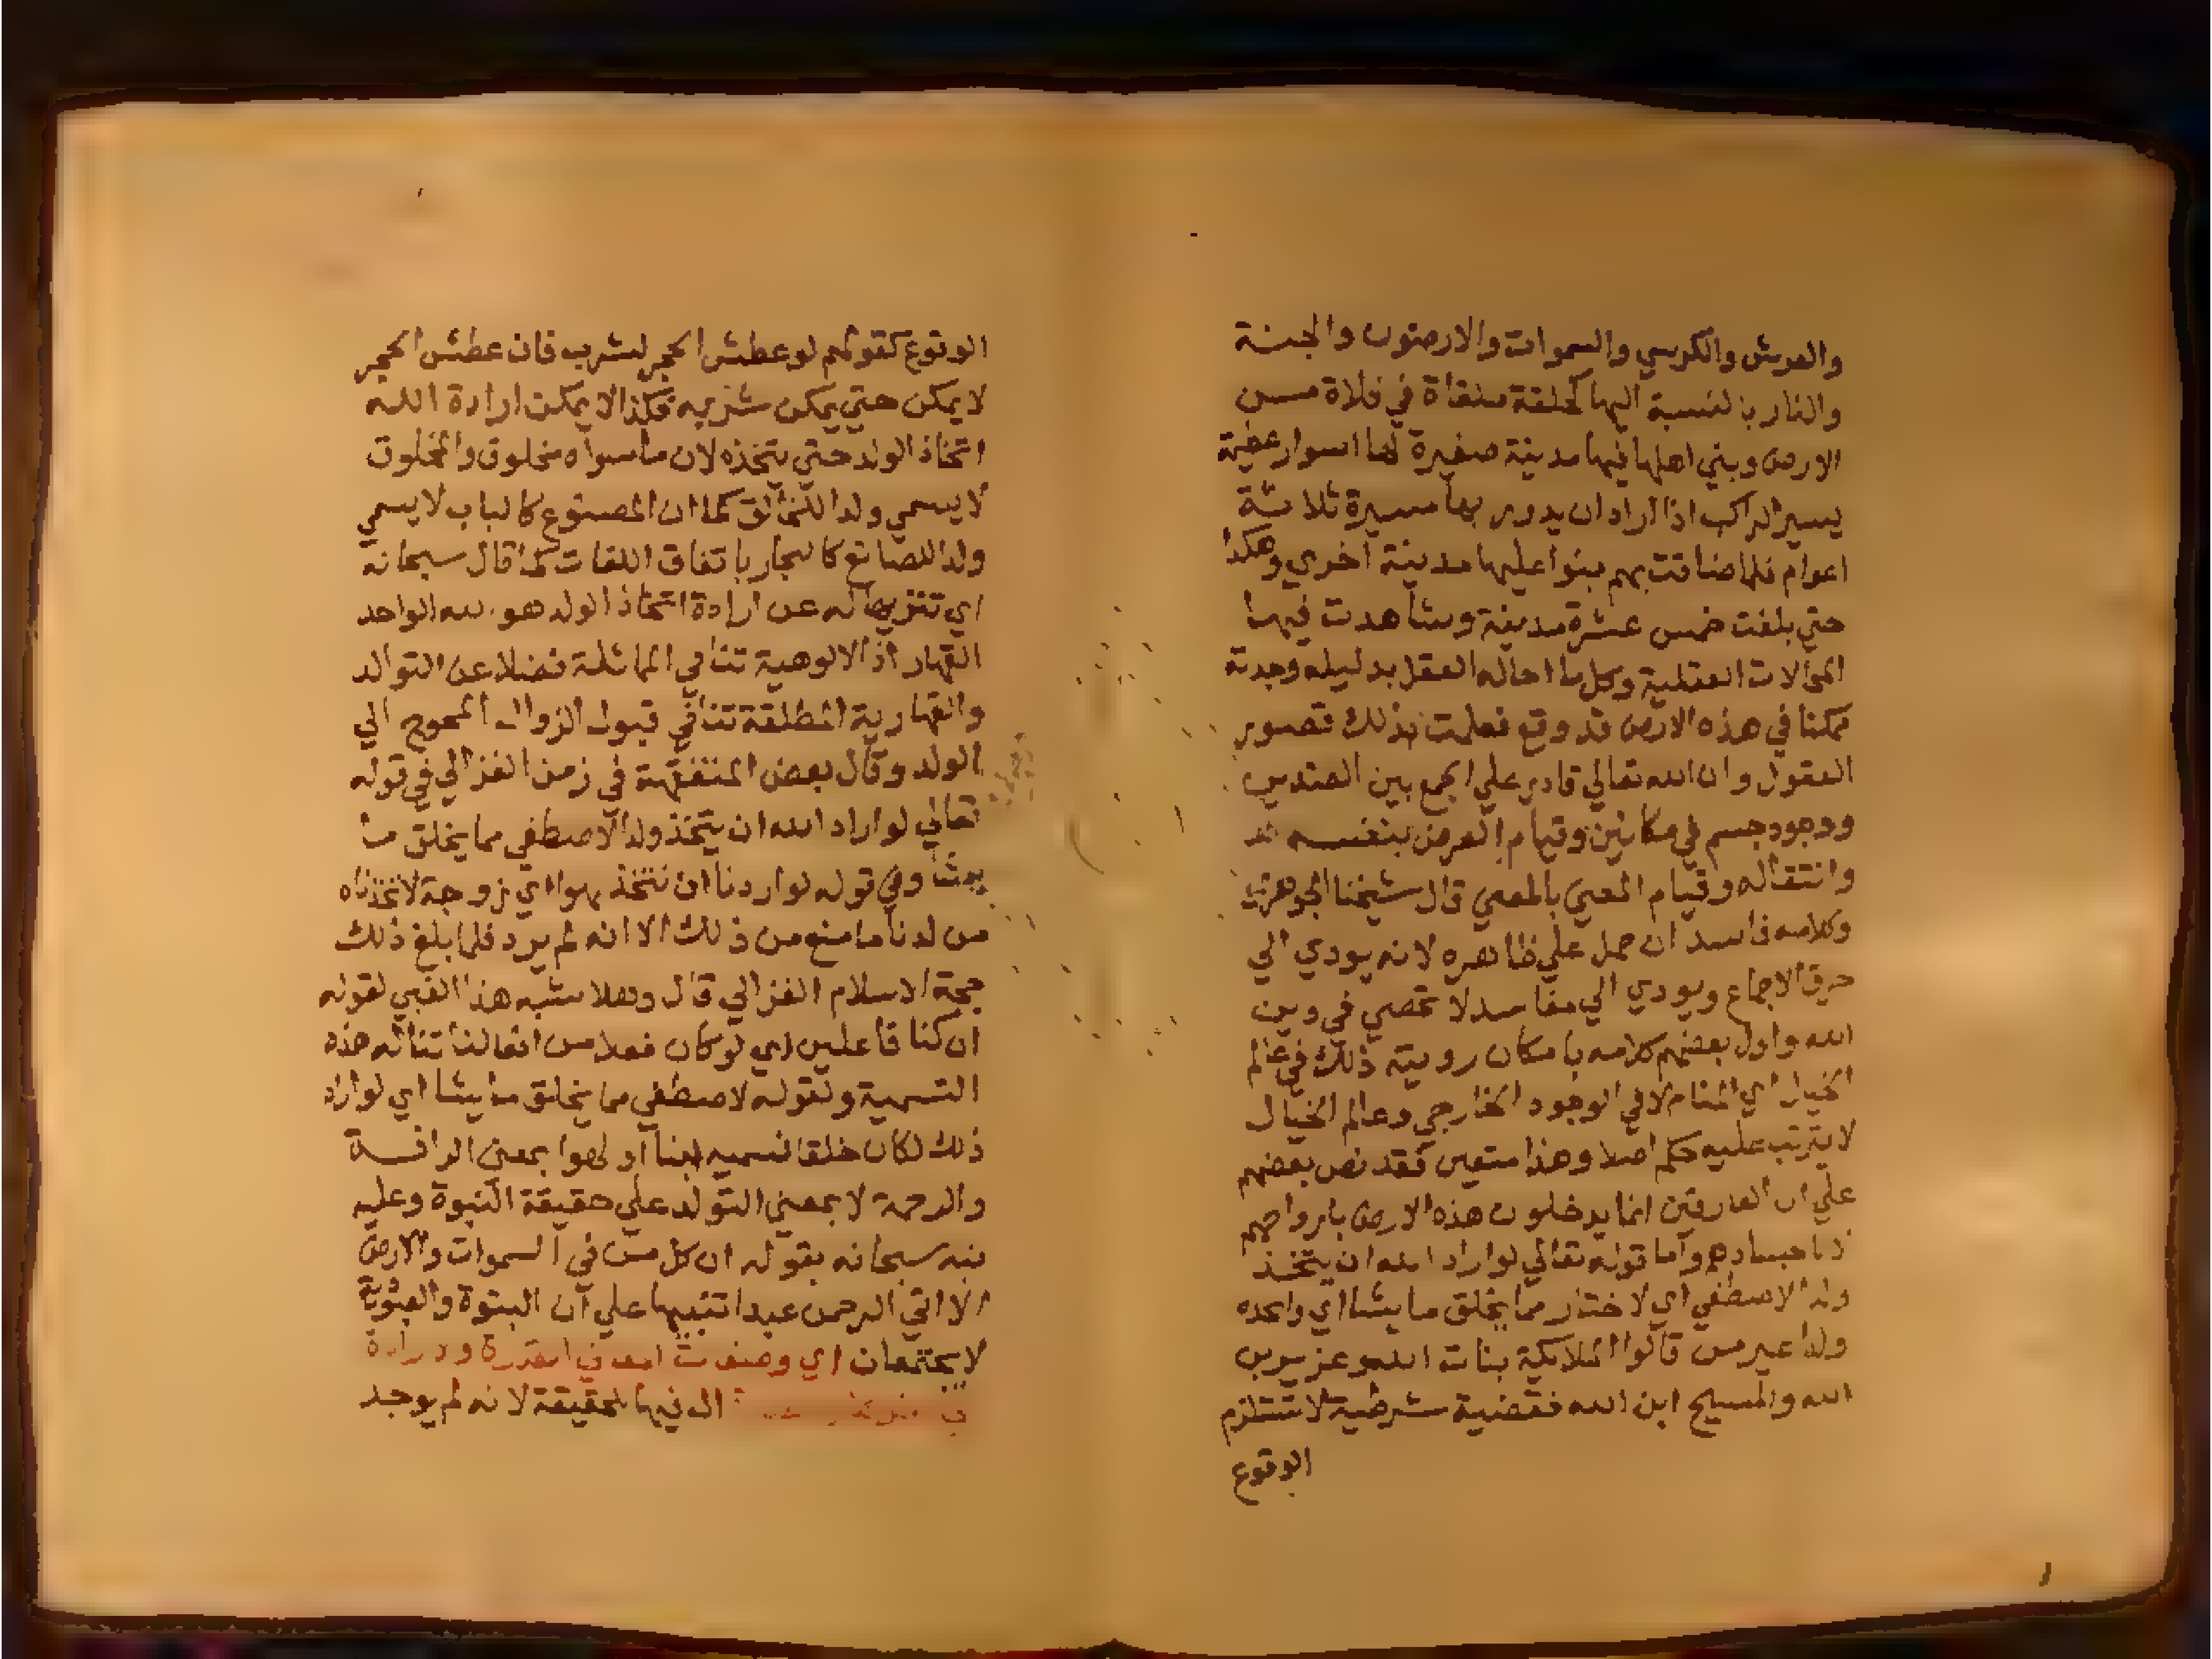 والعرش والكرسي والسموات والارضون والجنة
والنار بالنسبة اليها كحلقة ملقاة في فلاة مسن
الارض وبني اهلها فيها مدينة صغيرة لها اسوار عظيمة
يسير الراكب اذا اراد ان يدور بها مسيرة ثلاثة
اعوام فلما ضاقت بهم بنوا عليها مدينة اخري وهكذا
حتي بلغت خمس عشرة مدينة وشاهدت فيها
المحالات العقلية وكل ما احاله العقل بدليله وجدته
ممكنا في هذه الارض قد وقع فعلمت بذلك قصور
العقول وان الله تعالي قادر علي الجمع بين الضدين
ووجود جسم في مكانين وقيام العرض بنفسه
وانتقاله وقيام المعني بالمعني قال شيخنا الجوهري
وكلامه فاسد ان حمل علي ظاهره لانه يودي الي
خرق الاجماع ويودي الي مفاسد لا تحصي في دين
الله واول بعضهم كلامه بامكان روية ذلك في عالم
الخيال اي المنام لا في الوجود الخارجي وعالم الخيال
لا يترتب عليه حكم اصلا وهذا متعين فقد نص بعضهم
علي ان العارفين انما يدخلون هذه الارض بارواحهم
لا باجسادهم واما قوله تعالي لو اراد الله ان يتخذ
ولدا لاصطفي اي لاختار مما يخلق ما يشا اي واتخذه
ولدا غير من قالوا الملايكة بنات الله وعزير بن
الله والمسيح ابن الله فقضية شرطية لا تستلزم
الوقوع
الوقوع كقولهم لو عطش الحجر لشرب فان عطش الحجر
لا يمكن حتي يمكن شربه فكذا لا يمكن ارادة الله
اتخاذ الولد حتي يتخذه لان ما سواه مخلوق والمخلوق
لا يسمي ولدا للخالق كما ان المصنوع كالباب لا يسمي
ولدا للصانع كالنجار باتفاق اللغات كما قال سبحانه
اي تنزيها له عن ارادة اتخاذ الولد هو الله الواحد
القهار اذ الالوهية تنافي المماثلة فضلا عن التوالد
والقهارية المطلقة تنافي قبول الزوال المحوج الي
الولد وقال بعض المتفقهة في زمن الغزالي في قوله
تعالي لو اراد الله ان يتخذ ولدا لاصطفي مما يخلق ما
يشا وفي قوله لو اردنا ان نتخذ لهوا اي زوجة لاتخذناه
من لدنا ما منع من ذلك الا انه لم يرد فلما بلغ ذلك
حجة الاسلام الغزالي قال وهلا شبه هذا الغبي لقوله
ان كنا فاعلين اي لو كان فعلا من افعالنا تناله هذه
التسمية ولقوله لاصطفي مما يخلق ما يشا اي لو اراد
ذلك لكان خلقا نسميه ابنا او لهوا بمعني الرافة
والرحمة لا بمعني التولد علي حقيقة النبوة وعليه
نبه سبحانه بقوله ان كل من في السموات والارض
الا اتي الرحمن عبدا تنبيها علي ان البنوة والعبودية
لا يجتمعان اي وصفات
ال فيها للحقيقة لانه لم يوجد